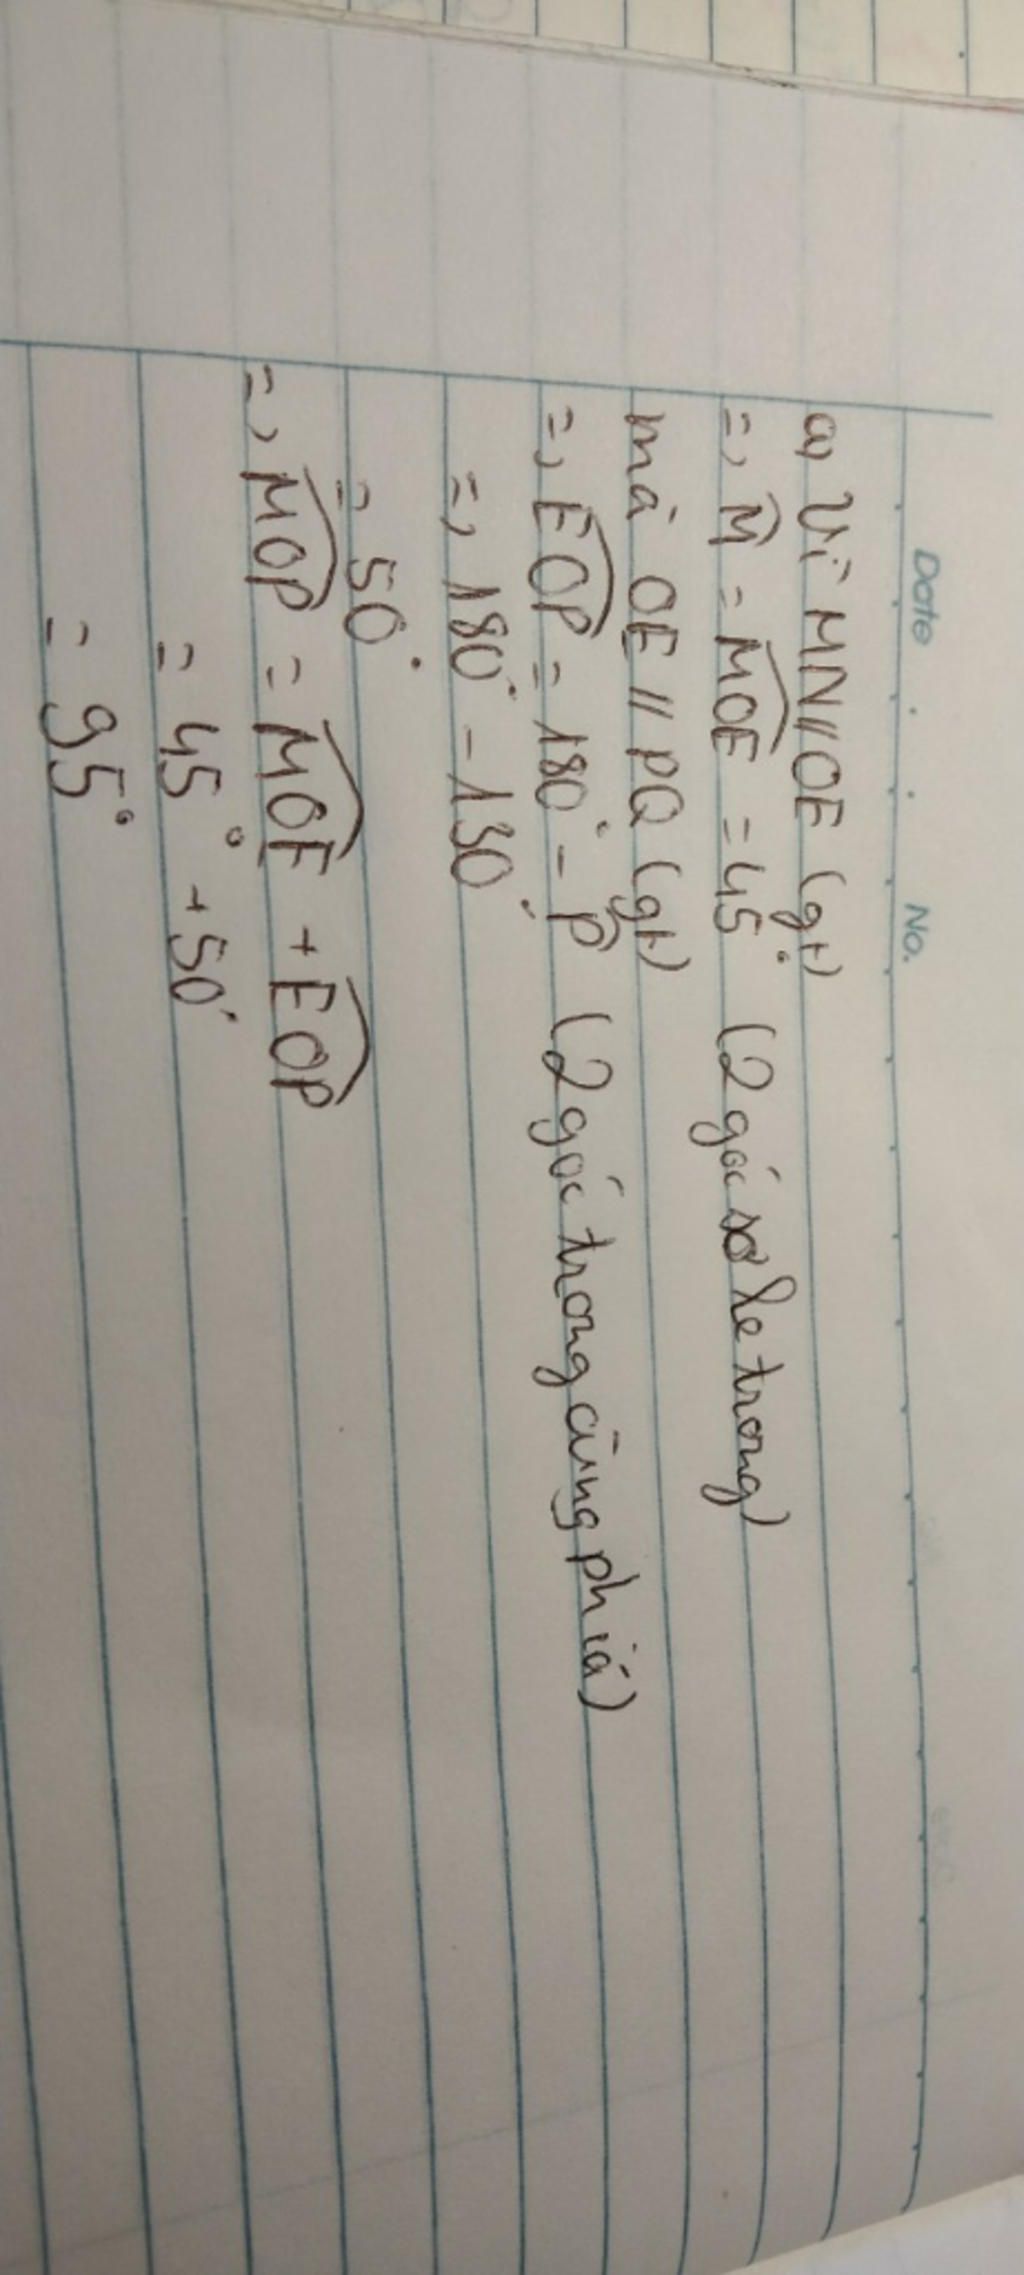 Date No.
a, Vì MN//OE (gt)
=, M̂ = M͡OE = 45° (2 góc so le trong)
mà OE // PQ (gt)
=, E͡OP = 180° - P̂ (2 góc trong cùng phía)
=, 180° - 130°
= 50°
=, M͡OP = M͡OE + E͡OP
= 45° + 50°
= 95°